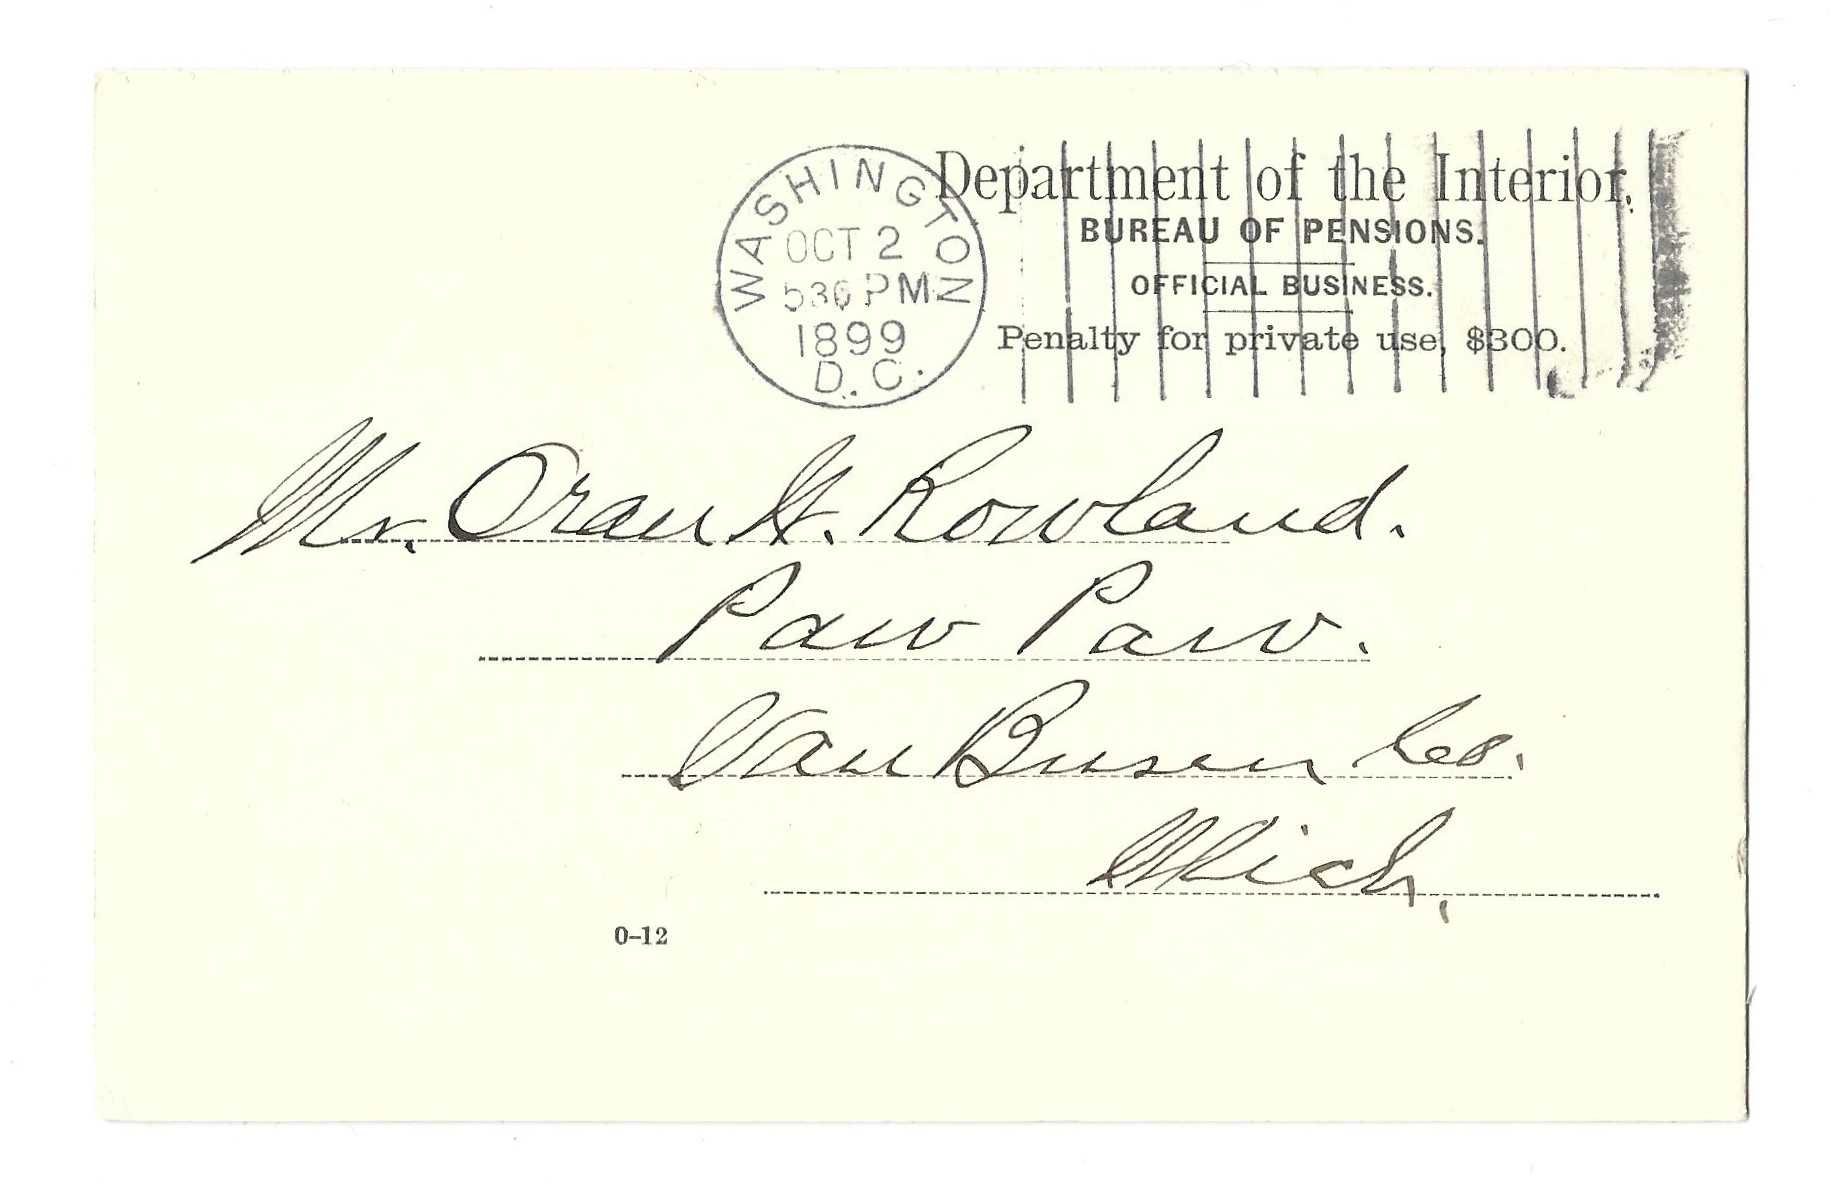 WASHINGTON
OCT 2
530 PM
1899
D. C.
Department of the Interior,
BUREAU OF PENSIONS.
OFFICIAL BUSINESS.
Penalty for private use, $300.
Mr. Oran W. Rowland.
Paw Paw.
Van Buren Co.
Mich.
0-12